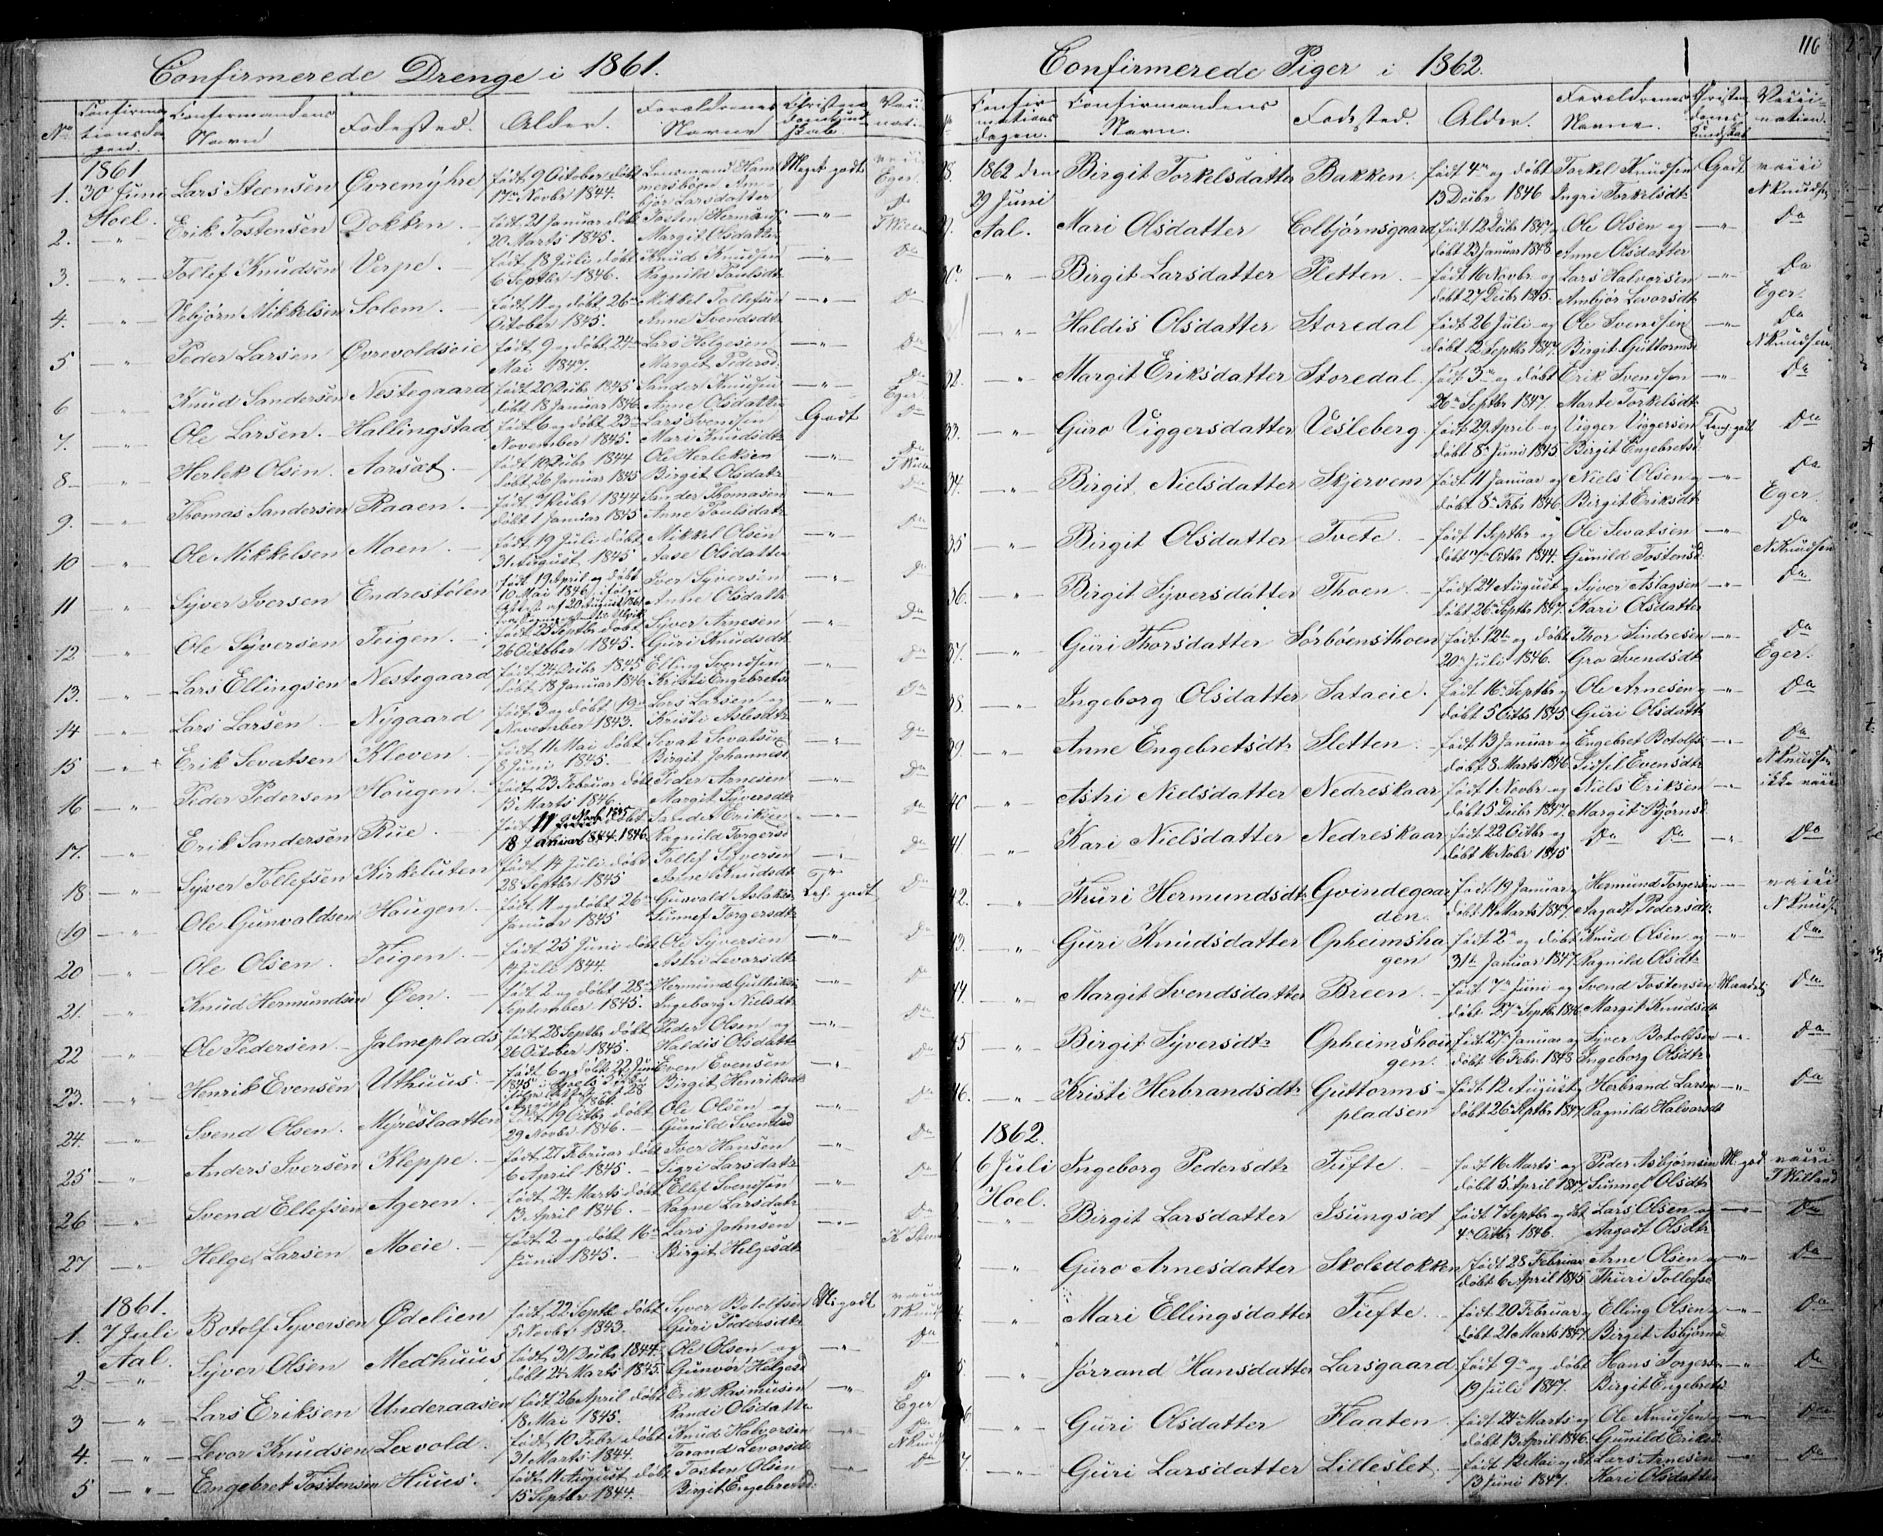 Confirmerede Drenge i 1861.
No Confirmationsdagen. Confirmandens Navn Fødested. Alder. Forældrenes Navne Christendomskundskab Vaccination
1861
1. 30 Juni Lars Steensen Øvremyhre født 9 October døbt 17de Novbr 1844. Meget godt vacci Eger.
Hoel.
2. " Erik Tostensen Dokken født 21 Januar døbt 20 Marts 1845. Tosten Hermans Margit Olsdatter —"— Da
3. " Tollef Knudsen Verpe. født 18 Juli døbt 6 Septbr 1846. Knud Knudsen Ragnild Paulsdtr —"— Da
4. " Vebjørn Mikkelsen Solem. født 11 og døbt 26 October 1845. Mikkel Tollefsen Anne Svendsdtr —"— Da
5 " Peder Larsen Øvrevoldseie født 9 og døbt 24 Mai 1847. Lars Helgesen Margit Pedersd —"— Da
6 " Knud Sandersen Nestegaard født 20 Decbr 1845 døbt 18 Januar 1846 Sander Knudsen Anne Olsdatter —"— Da Eger.
7. " Ole Larsen. Hallingstad født 6 og døbt 23 November 1845. Lars Svendsen Mari Knudsdtr Godt Da
8 " Herlek Olsen. Aarsæt. født 10 Decbr 1844 døbt 26 Januar 1845 Ole Herleksen Birgit Olsdatr —"— Da
9. " Thomas Sandersen Raaen. født 7 Decbr 1844 døbt 1 Januar 1845 Sander Thomasen Anne Paulsdatr —"— Da
10 " Ole Mikkelsen Moen. født 19 Juli døbt 31 August 1845 Mikkel Olsen Aase Olsdatter —"— Da
11 " Syver Iversen Endrestølen født 19 April og døbt 10 Mai 1846 ifølge Attest af 20 August 1861 Iver Syversen Anne Olsdatr —"— Da
12 " Ole Syversen Teigen. født 25 Septbr døbt 26 October 1845. Syver Arnesen Guri Knudsdt —"— Da
13. " Lars Ellingsen Nestegaard født 24 Decbr 1845 døbt 18 Januar 1846 Elling Svendsen Kristi Engebretsd —"— Da
14 " Lars Larsen Nygaard født 3 og døbt 19 November 1843. Lars Larsen og Kristi Aslesdtr —"— Da
15 " Erik Sevatsen Kleven. født 11 Mai døbt 8 Juni 1845. Sevat Sevatsen Birgit Johannesd —"— Da
16 " Peder Pedersen Hougen født 23 Februar døbt 15 Marts 1846. Peder Arnesen Margit Syversdt —"— Da
17. " Erik Sandersen Røe. født 11 Novb 1845 døbt 18 Januar 1844. 1846. Sander Eriksen Ragnild Torgersd —"— Da
18. " Syver Tollefsen Kirkeluten født 14 Juli døbt 28 Septbr 1845 Tollef Syversen Anne Knudsdt —"— Da
19 " Ole Gunvaldsen Haugen. født 11 og døbt 26 Januar 1845 Gunvald Aslaks Sünnef Torgersdt Teml. godt Da
20 " Ole Olsen. Teigen. født 25 Juni døbt 14 Juli 1844. Ole Syversen Astri Levorsdt —"— Da
21. " Knud Hermundsen Øen. født 2 og døbt 28 September 1845. Hermund Gulliks Ingeborg Nielsdt —"— Da
22 " Ole Pedersen Jalmeplads født 28 Septbr døbt 26 October 1845. Peder Olsen og Haldis Olsdatr —"— Da
23. " Henrik Evensen Uthuus født 6 og døbt 22 Juni 1845 Even Evensen Birgit Henriksdt —"— Da
24. " Svend Olsen. Myreslaatten født 19 Octbr døbt 29 Novbr 1846. Ole Olsen og Gunild Svendsd —"— Da
25 " Anders Iversen Kleppe. født 27 Februar døbt 6 April 1845. Iver Hansen Sigri Larsdatr —"— Da
26 " Svend Ellefsen Ageren. født 24 Marts døbt 13 April 1846. Ellef Svendsen Ragne Larsdatr —"— Da
27 " Helge Larsen Moeie født 2 og døbt 16 Juni 1845. Lars Johnsen Birgit Helgesdt —"—
1861.
1. 7 Juli Botolf Syversen Ødelien født 22 Septbr døbt 5 Novbr 1843. Syver Botolfsen Guri Pedersdtr M. godt
Aal.
2. " Syver Olsen Medhuus født 31 Decbr 1844 døbt 24 Marts 1845. Ole Olsen og Gunvor Helgesd —"— Da
3 " Lars Eriksen Underaasen født 26 April døbt 18 Mai 1845. Erik Rasmusen Randi Olsdatter —"— Da Eger.
4. " Levor Knudsen Lexvold. født 10 Febr døbt 31 Marts 1844. Knud Halvorsen Tarand Levorsdt —"— Da
5 " Engebret Tostensen Huus. født 11 August døbt 15 Septbr 1844. Tosten Olsen Birgit Engebretsd —"— Da
Confirmerede Piger i 1862.
116
Confirmationsdagen. Confirmandens Navn. Fødested. Alder. Forældrenes Navne. Christendomskundskab Vaccination.
28. 1862 den 29 Juni Birgit Torkelsdatter Bakken. født 4de og døbt 13 Decbr 1846 Torkel Knudsen Ingri Torkelsdt Godt vacci N Knudsen
Aal. Mari Olsdatter Colbjørnsgaard født 12 Decbr 1847 og døbt 23 Januar 1848 Ole Olsen og Anne Olsdatter —"— Da
30. " Birgit Larsdatter Pletten. født 16 Novbr og døbt 27 Decbr 1845. Lars Halvorsen Ambjør Levorsdt —"— Da Eger.
" Haldis Olsdatter Storedal født 26 Juli og døbt 12 Septbr 1847. Ole Svendsen Birgit Guttormsd —"— Da N Knudsen
32. " Margit Eriksdatter Storedal. født 3de og døbt 26de Septbr 1847 Erik Svendsen Marte Torkelsdt —"— Da
33. " Guro Viggersdatter Vesleberg. født 29 April og døbt 8de Juni 1845 Vigger Viggersen Birgit Engebretsd Teml. godt Da
34. " Birgit Nielsdatter Skjervem født 11 Januar og døbt 8de Febr 1846 Niels Olsen og Birgit Eriksdt —"— Da Eger.
35 " Birgit Olsdatter Tvete. født 1 Septbr og døbt 7de Octbr 1844. Ole Sevatsen Gunild Tostensd —"— Da N Knudsen
36. " Birgit Syversdatter Thoen. født 24 August og døbt 26 Septbr 1847. Syver Aslagsen Kari Olsdatter —"— Da
37. " Guri Thorsdatter Sørbøensthoen født 12te og døbt 20de Juli 1846. Thor Sindresen Gro Svendsdt —"— Da Eger.
38. " Ingeborg Olsdatter Sataeie. født 16 Septbr og døbt 5 Octbr 1845 Ole Arnesen og Guri Olsdatter —"— Da
39. " Anne Engebretsdt Sletten. født 13 Januar og døbt 8 Marts 1846 Engebret Botolfs Sidsel Evensdtr —"— Da N Knudsen
40 " Astri Nielsdatter Nedreskaar født 1 Novbr og døbt 5 Decbr 1847. Niels Eriksen Margit Bjørnsd —"— ikke vacci
41 " Kari Nielsdatter Nedreskaar født 22 Octbr og døbt 16 Nobr 1845 Da Da " Da
42. " Thuri Hermundsdtr Gvindegaarden. født 19 Januar og døbt 14 Marts 1847. Hermund Torgersen Aagodt Pedersdt —"— vacci N Knuds
43. " Guri Knudsdatter Opheimshagen født 2de og døbt 31te Januar 1847. Knud Olsen og Ragnild Olsdt —"— Da
44. " Margit Svendsdatter Breen. født 7de Juni og døbt 27de Septbr 1846 Svend Tostensen Margit Knudsdt Maadel Da
45 " Birgit Syversdt Opheimshougen. født 27 Januar og døbt 6 Febr 1848 Syver Botolfsen Ingeborg Olsdtr —"— Da
46. " Kristi Herbrandsdtr Guttormspladsen født 12 August døbt 26 Septbr 1847. Herbrand Larsen Ragnild Halvorsdt —"— Da
1862.
1. 6 Juli Ingeborg Pedersdtr Tufte. født 16 Marts og døbt 5 April 1847. Peder Asbjørnsen Sünnef Olsdtr M. god vacci
Hoel. Birgit Larsdatter Isungsæt født 7 Septbr og døbt 4de Octbr 1846. Lars Olsen og Aagodt Olsdtr —"— Da
" Guro Arnesdatter Skoledokken født 28 Februar døbt 6 April 1845 Arne Olsen og Thuri Tollefsd —"— Da
4. " Mari Ellingsdatter Tufte født 20 Februar og døbt 21 Marts 1847. Elling Olsen Birgit Asbjørnsd —"— Da
5 " Jørrand Hansdatter Larsgaard født 9de og døbt 19 Juli 1847. Hans Torgersen Birgit Engebretsd —"— Da
6 " Guri Olsdatter Flaaten. født 24 Marts og døbt 13 April 1846. Ole Knudsen Gunild Eriksd —"— Da
7 " Guri Larsdatter Lilleslet. født 12 Mai og døbt 13 Juni 1847. Lars Arnesen Kari Olsdatter —"— Da